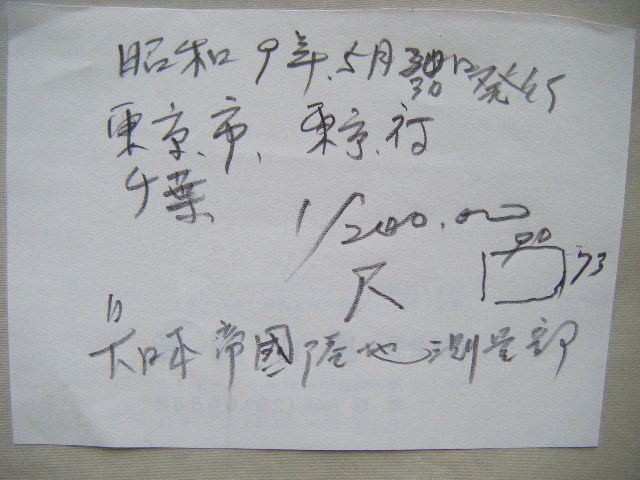 昭和9年.5月30日発行
東京市、東京府
千葉
1/200.000
尺
90
73
大日本帝國陸地測量部